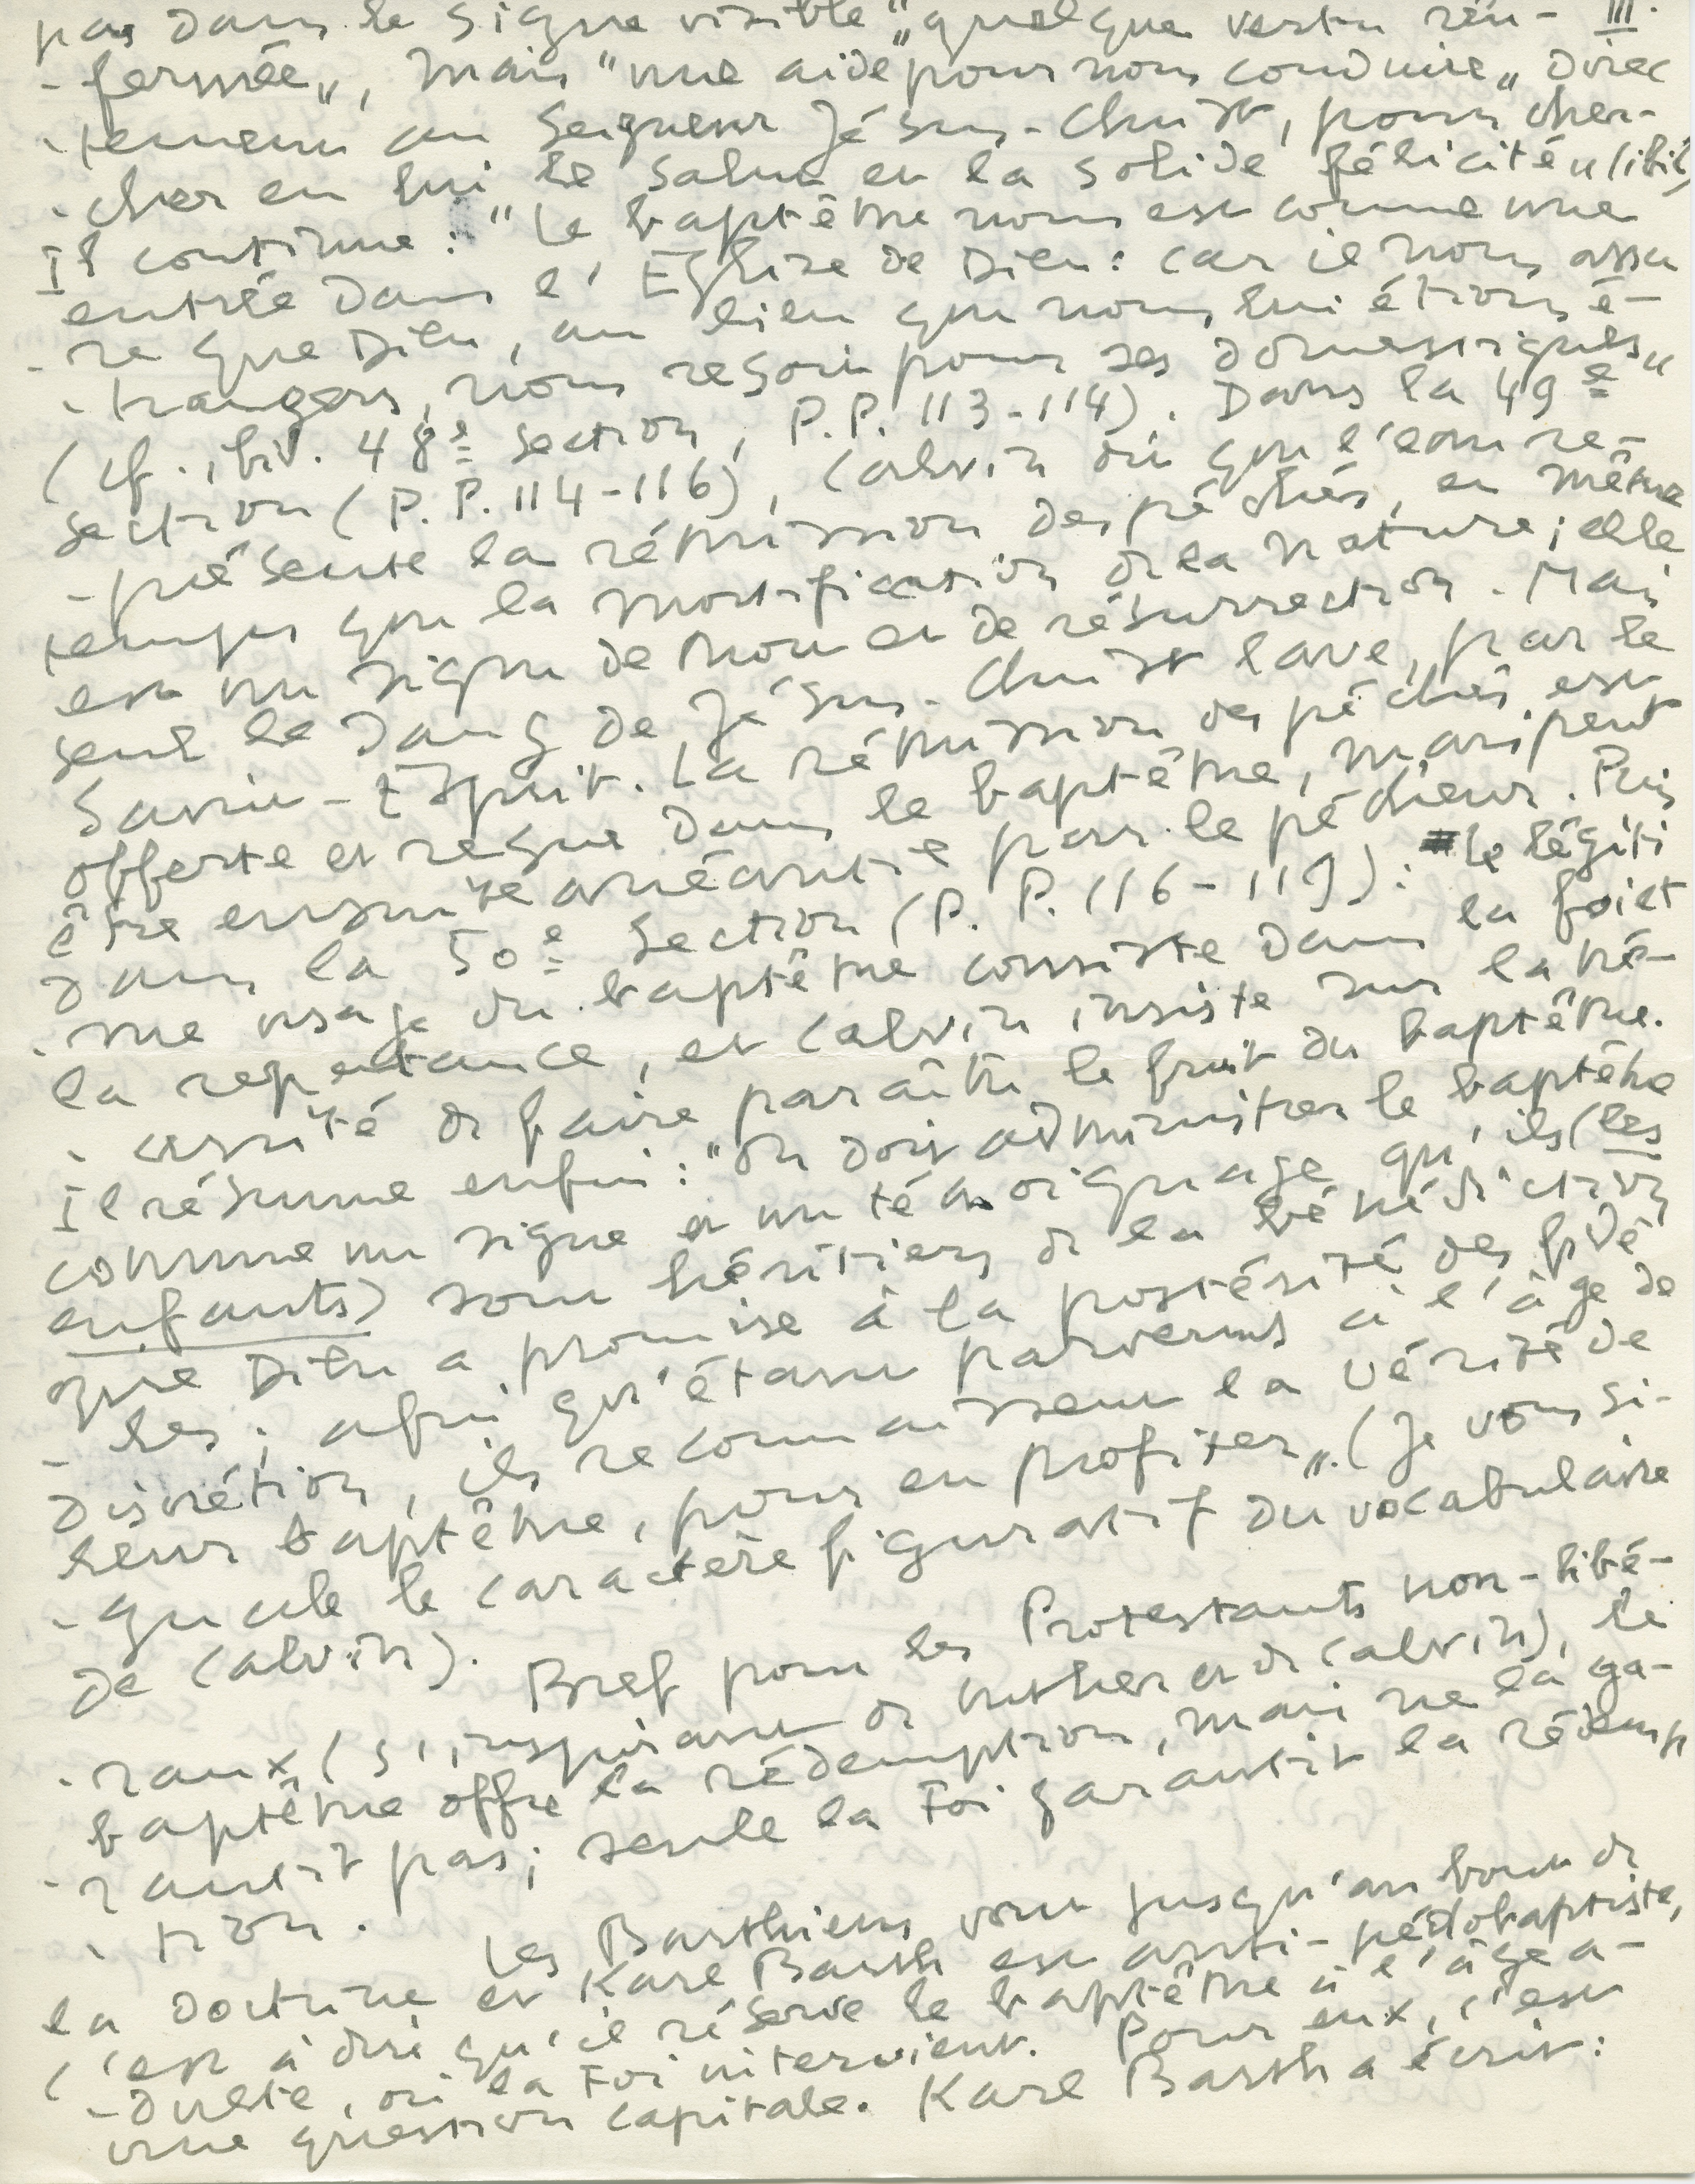 pas dans le signe visible „quelque vertu ren- III.
-fermée„, mais "une aide pour nous conduire„ direc
-tement au Seigneur Jésus-Christ, pour cher-
-cher en lui le salut et la solide félicité„ (ibid,
Il continue : "Le baptême nous est comme une
entrée dans l'Eglise de Dieu : car il nous assu
-re que Dieu, au lieu que nous lui étions é-
-trangers, nous reçoit pour ses domestiques„
(cf. ibid. 48e section, P.P. 113-114). Dans la 49e
section (P.P. 114-116), Calvin dit que l'eau re-
-présente la rémission des péchés, en même
temps que la mortification de la nature ; elle
est un signe de mort et de résurrection. Mais
seul le sang de Jésus-Christ lave, par le
Saint-Esprit. La rémission des péchés est
offerte et reçue dans le baptême, mais peut
être ensuite anéantie par le pécheur. Puis
dans la 50e section (P. P. 116-119) : le légiti
-me usage du baptême consiste dans la foi et
la repentance, et Calvin insiste sur la né-
-cessité de faire paraître le fruit du baptême.
Il résume enfin : "On doit administrer le baptême
comme un signe et un témoignage qu'ils (les
enfants) sont héritiers de la bénédiction
que Dieu a promise à la postérité des fidè
-les ; afin qu'étant parvenus à l'âge de
discrétion, ils reconnaissent la vérité de
leur baptême, pour en profiter„. (Je vous si-
-gnale le caractère figuratif du vocabulaire
de Calvin).
Bref pour les Protestants non-libé-
-raux (s'inspirant de Luther et de Calvin), le
baptême offre la rédemption, mais ne la ga-
-rantit pas ; seule la Foi garantit la rédemp
-tion.
Les Barthiens vont jusqu'au bout de
la doctrine et Karl Barth est anti-pédobaptiste,
c'est à dire qu'il réserve le baptême à l'âge a-
-dulte, où la Foi intervient. Pour eux, c'est
une question capitale. Karl Barth a écrit :